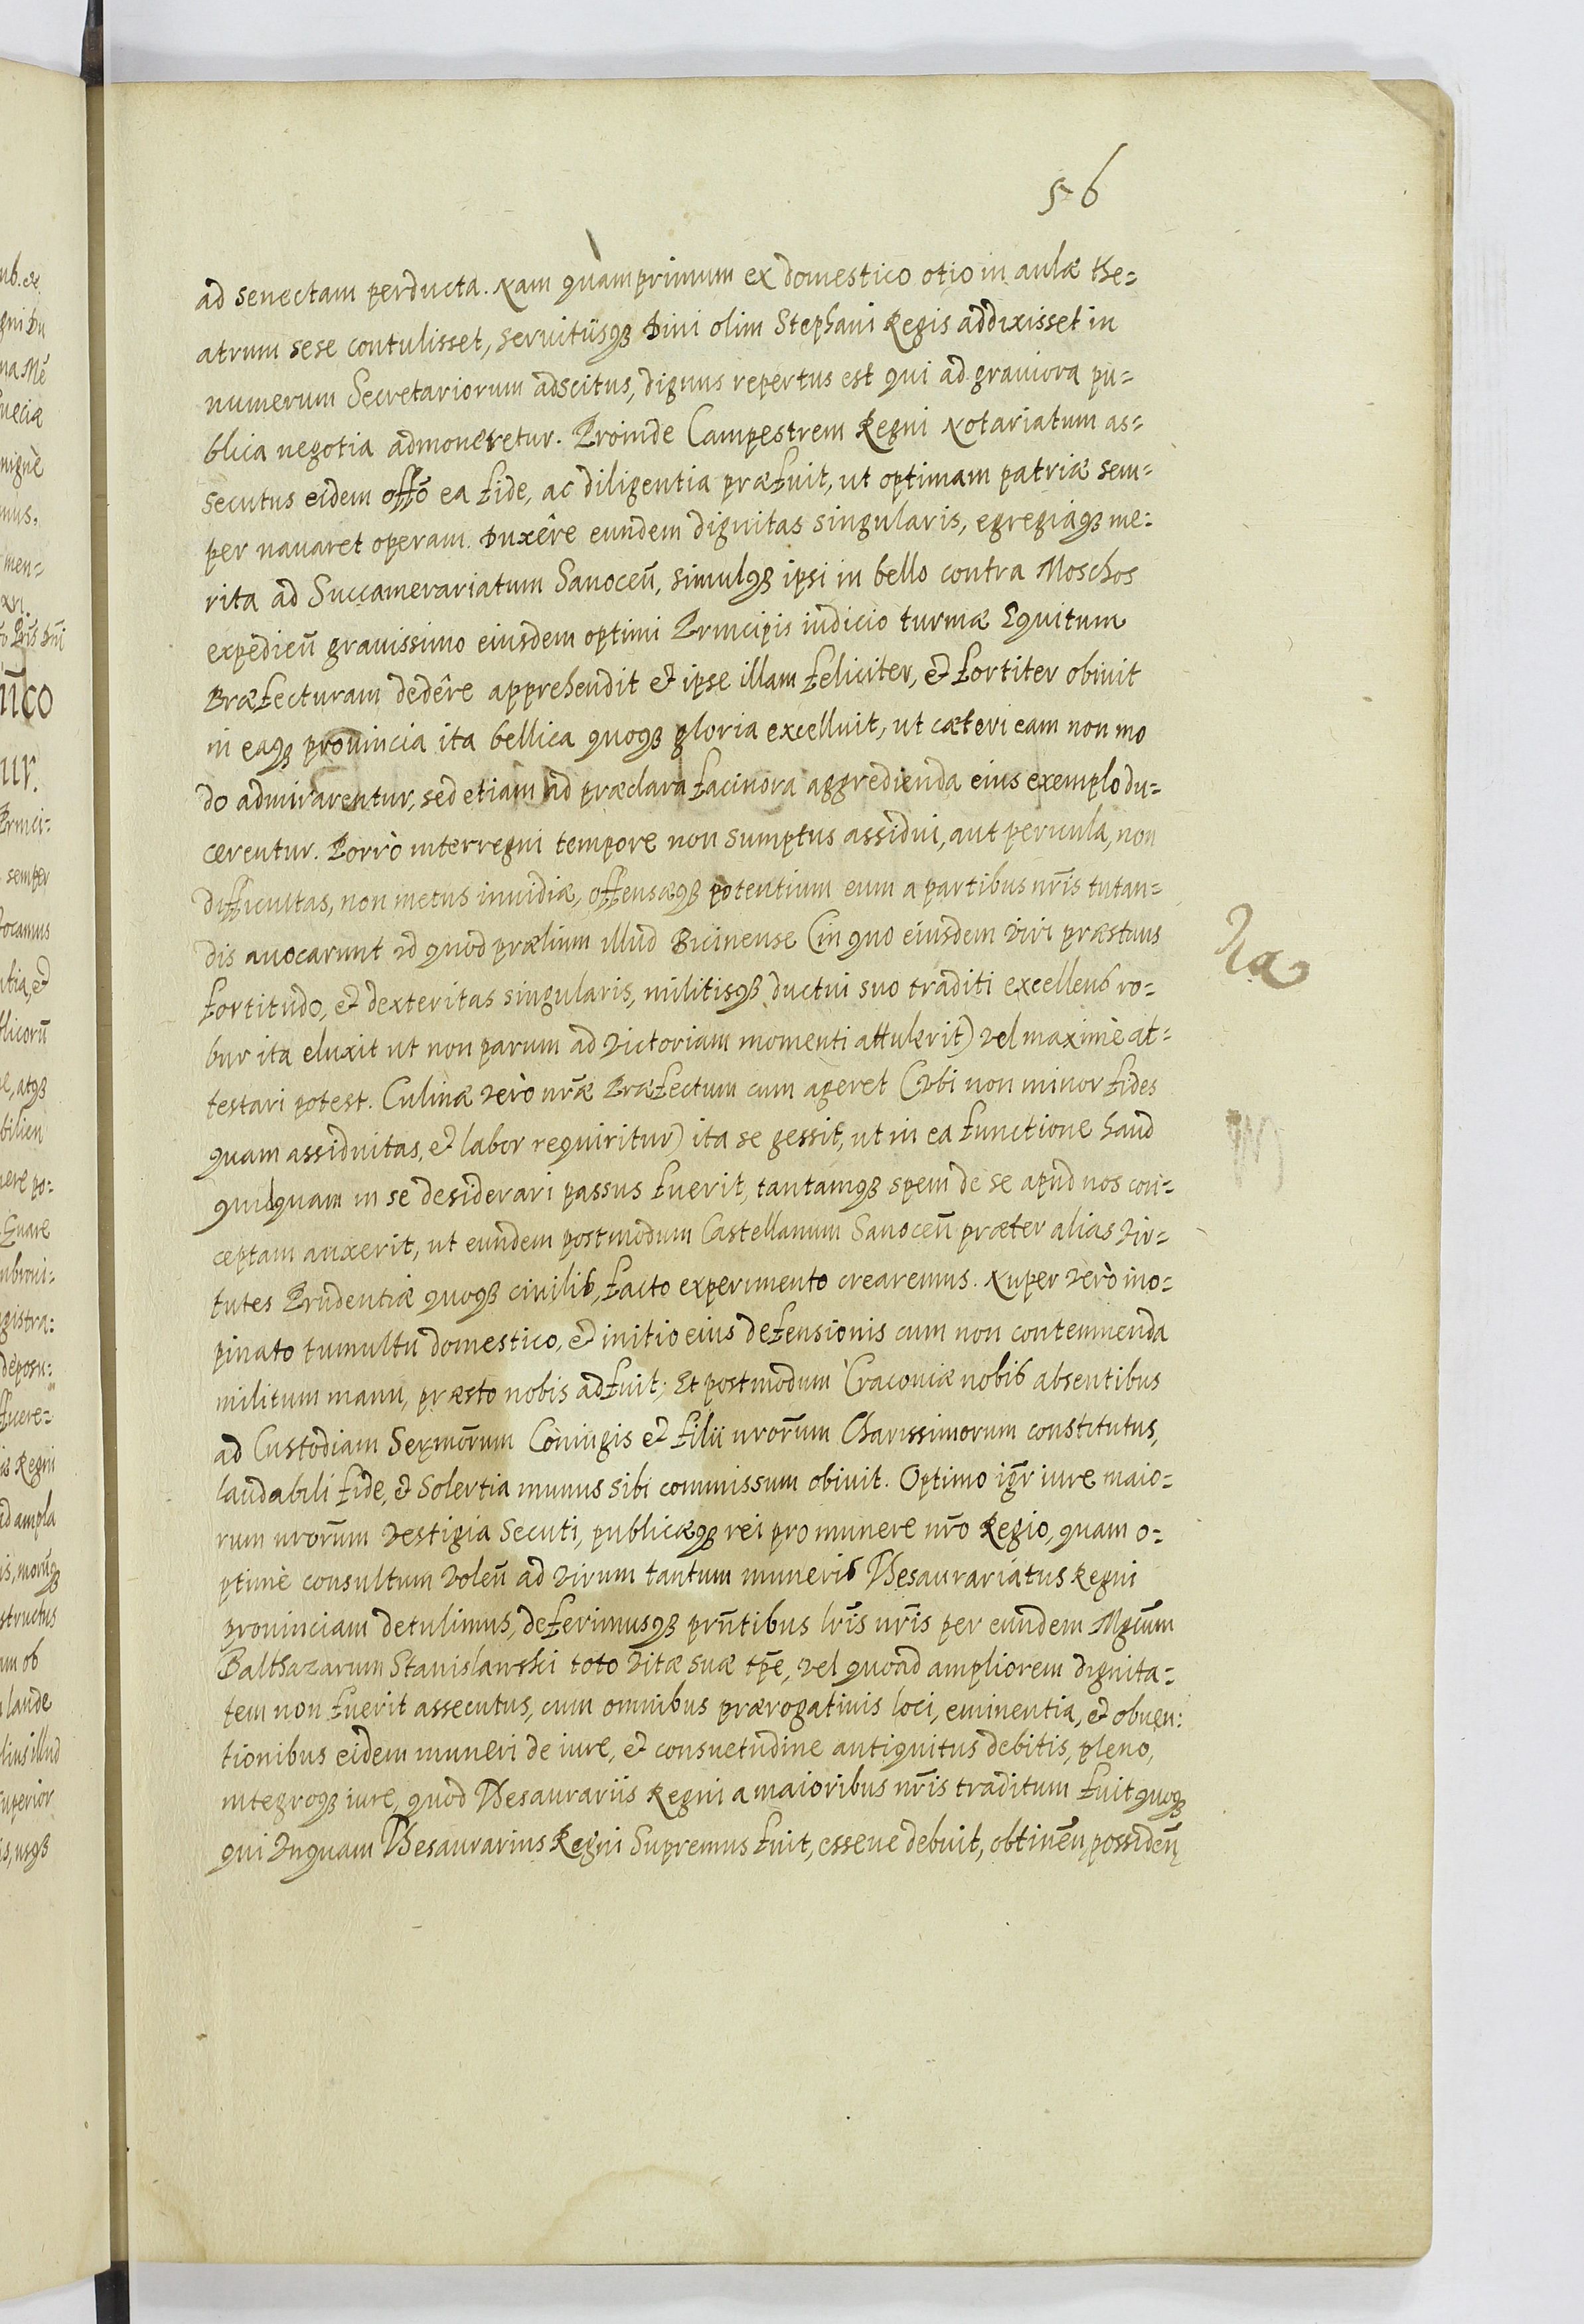 56
ad senectam perducta. Nam quamprimum ex domestico otio in aulæ the=
atrum sese contulisset, seruitiisq3 Diui olim Stephani Regis addixisset in
numerum Secretariorum adscitus, dignus repertus est qui ad grauiora pu=
blica negotia admoneretur. Proinde Campestrem Regni Notariatum as=
secutus eidem offō ea fide, ac diligentia præfuit, ut optimam patriæ sem=
per nauaret operam. Duxêre eundem dignitas singularis, egregiaq3 me=
rita ad Succamerariatum Sanoceñ, simulq3 ipsi in bello contra Moschos
expedieñ grauissimo eiusdem optimi Principis iudicio turmæ Equitum
Præfecturam dedêre apprehendit et ipse illam feliciter, et fortiter obiuit
in eaq3 prouincia ita bellica quoq3 gloria excelluit, ut cæteri eam non mo
do admirarentur, sed etiam ad præclara facinora aggredienda eius exemplo du=
cerentur. Porrò interregni tempore non sumptus assidui, aut pericula, non
difficultas, non metus inuidiæ, offensæq3 potentium eum a partibus nr̄is tutan=
dis auocarunt id quod prælium illud Bicinense (in quo eiusdem viri præstans
fortitudo, et dexteritas singularis, militisq3 ductui suo traditi excellens ro=
bur ita eluxit ut non parum ad victoriam momenti attulerit) vel maximè at=
testari potest. Culinæ verò nr̄æ Præfectum cum ageret (vbi non minor fides
quam assiduitas, et labor requiritur) ita se gessit, ut in ea functione haud
quidquam in se desiderari passus fuerit, tantamq3 spem de se apud nos con=
ceptam auxerit, ut eundem postmodum Castellanum Sanoceñ præter alias vir=
tutes Prudentiæ quoq3 ciuilis, facto experimento crearemus. Nuper verò ino=
pinato tumultu domestico, et initio eius defensionis cum non contemnenda
militum manu, præsto nobis adfuit; Et postmodum Cracouiæ nobis absentibus
ad Custodiam Serm̄orum Coniugis et filii nrōrum Charissimorum constitutus,
laudabili fide, et Solertia munus sibi commissum obiuit. Optimo igr̄ iure maio=
rum nrōrum vestigia Secuti, publicæq3 rei pro munere nr̄o Regio, quam o=
ptimè consultum voleñ ad virum tantum muneris Thesaurariatus Regni
prouinciam detulimus, deferimusq3 prñtibus lr̄is nr̄is per eundem Mgcūm
Balthazarum Stanislawski toto vitæ suæ tp̄e, vel quoad ampliorem dignita=
tem non fuerit assecutus, cum omnibus prærogatiuis loci, eminentia, et obuen:
tionibus eidem muneri de iure, et consuetudine antiquitus debitis, pleno,
integroq3 iure, quod Thesaurariis Regni a maioribus nr̄is traditum fuit quoq3
qui vnquam Thesaurarius Regni Supremus fuit, esseue debuit, obtineñ, possideñ